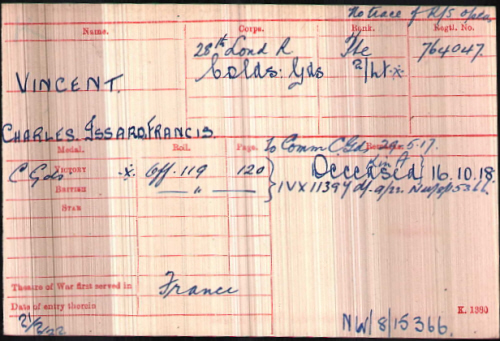 No trace of R/S papers
Name. Corps. Rank. Regtl. No.
28th Lond R Pte 764047.
Colds: Gds 2/Lt. x.
VINCENT.
CHARLES. ISSARD, FRANCIS.
To Comm C Gds 29.5.17.
Medal. Roll. Page. Remarks.
C Gds VICTORY x. Off. 119 120 Deceased 16.10.18
BRITISH — " — — " — IVX 1139
STAR
Theatre of War first served in France
Date of entry therein K. 1380
NW/8/15366.